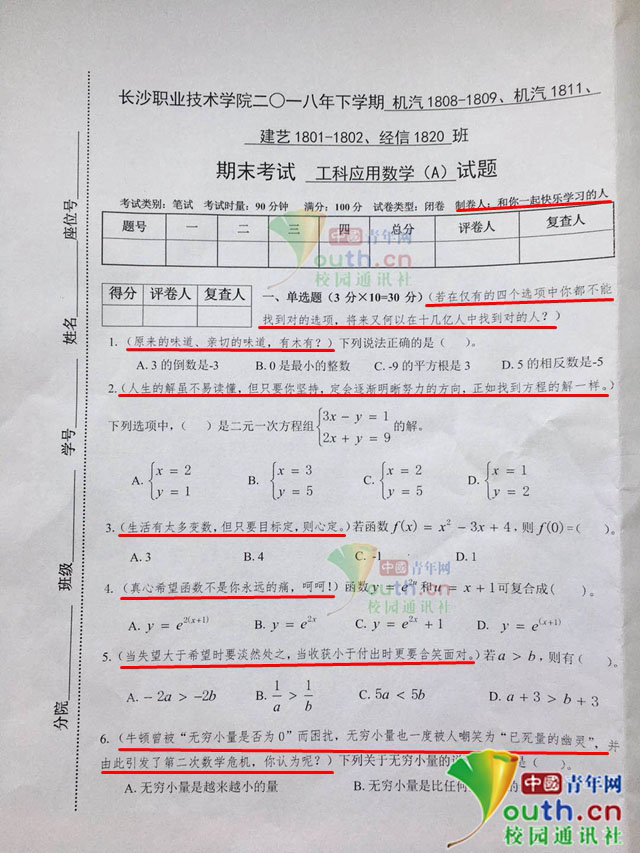 长沙职业技术学院二〇一八年下学期 机汽1808-1809、机汽1811、
建艺1801-1802、经信1820 班
期末考试 工科应用数学（A）试题
考试类别：笔试 考试时量：90分钟 满分：100分 试卷类型：闭卷 制卷人：和你一起快乐学习的人
题号 一 二 三 四 总分 评卷人 复查人
得分 评卷人 复查人
一、单选题（3分×10=30分）（若在仅有的四个选项中你都不能
找到对的选项，将来又何以在十几亿人中找到对的人？）
1.（原来的味道、亲切的味道，有木有？）下列说法正确的是（ ）。
A. 3的倒数是-3 B. 0是最小的整数 C. -9的平方根是3 D. 5的相反数是-5
2.（人生的解虽不易读懂，但只要你坚持，定会逐渐明晰努力的方向，正如找到方程的解一样。）
下列选项中，（ ）是二元一次方程组{3x − y = 1
2x + y = 9 的解。
A. {x = 2
y = 1
B. {x = 3
y = 5
C. {x = 2
y = 5
D. {x = 1
y = 2
3.（生活有太多变数，但只要目标定，则心定。）若函数f(x) = x² − 3x + 4，则f(0)=（ ）。
A. 3 B. 4 C. -1 D. 1
4.（真心希望函数不是你永远的痛，呵呵！）函数y = e²ᵘ和u = x + 1可复合成（ ）。
A. y = e^{2(x+1)} B. y = e^{2x} C. y = e^{2x} + 1 D. y = e^{(x+1)}
5.（当失望大于希望时要淡然处之，当收获小于付出时更要含笑面对。）若a > b，则有（ ）。
A. − 2a > −2b B. 1/a > 1/b C. 5a < 5b D. a + 3 > b + 3
6.（牛顿曾被“无穷小量是否为0”而困扰，无穷小量也一度被人嘲笑为“已死量的幽灵”，并
由此引发了第二次数学危机，你认为呢？）下列关于无穷小量的 是（ ）。
A. 无穷小量是越来越小的量 B. 无穷小量是比任何 的
座位号
姓名
学号
班级
分院
中國青年网
youth.cn
校园通讯社
中國青年网
校园通讯社
中國青年网
youth.cn
校园通讯社